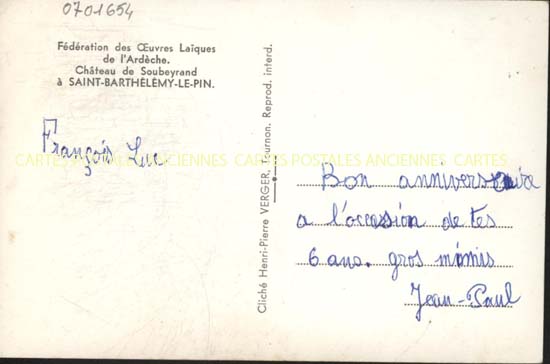 0701654
Fédération des Œuvres Laïques
de l'Ardèche.
Château de Soubeyrand
à SAINT-BARTHÉLÉMY-LE-PIN.
François Luc
CARTES POSTALES ANCIENNES CARTES POSTALES ANCIENNES CARTES
Cliché Henri-Pierre VERGER, Tournon. Reprod. interd.
Bon anniversaire
a l'occasion de tes
6 ans. gros mimis
Jean-Paul